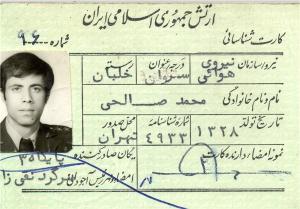 ارتش جمهوری اسلامی ایران
کارت شناسائی
شماره ۹۶
نیرو/سازمان نیروی هوائی
درجه/عنوان ستوان
رسته خلبان
نام و نام خانوادگی محمد صالحی
تاریخ تولد ۱۳۲۸
شماره شناسنامه ۴۹۳۳
محل صدور تهران
نمونه امضاء دارنده کارت
یکان صادر کننده پایداه۳
امضاء
سرگرد تقی زا